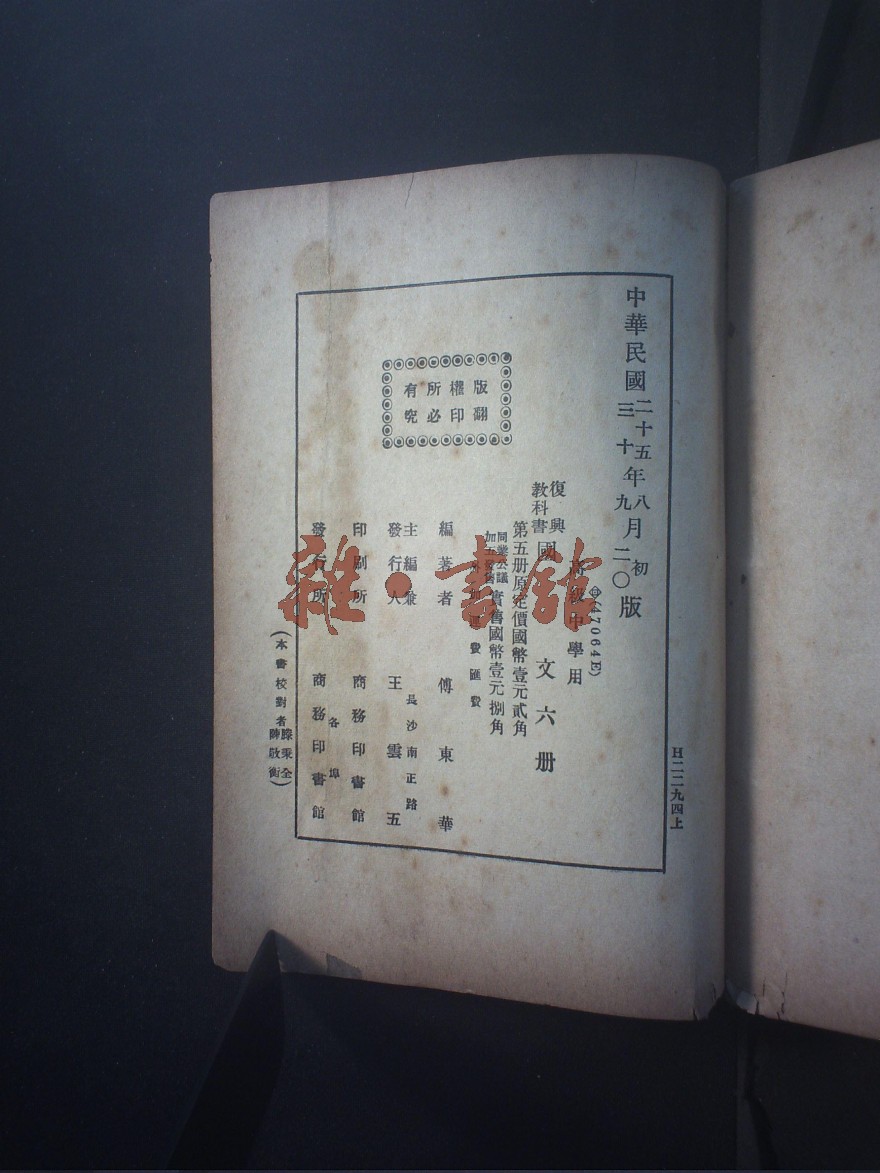 中華民國二十五年八月初版
三十年九月二〇版
㊥(47064E)
高級中學用
復興教科書國文六册
第五册原定價國幣壹元貳角
同業公議加五發售實售國幣壹元捌角
外加運費匯費
版權所有
翻印必究
編著者 傅東華
主編兼發行人 王雲五
長沙南正路
印刷所 商務印書館
各埠
發行所 商務印書館
(本書校對者滕秉全
陳啟衡)
H二二九四上
雜·書館